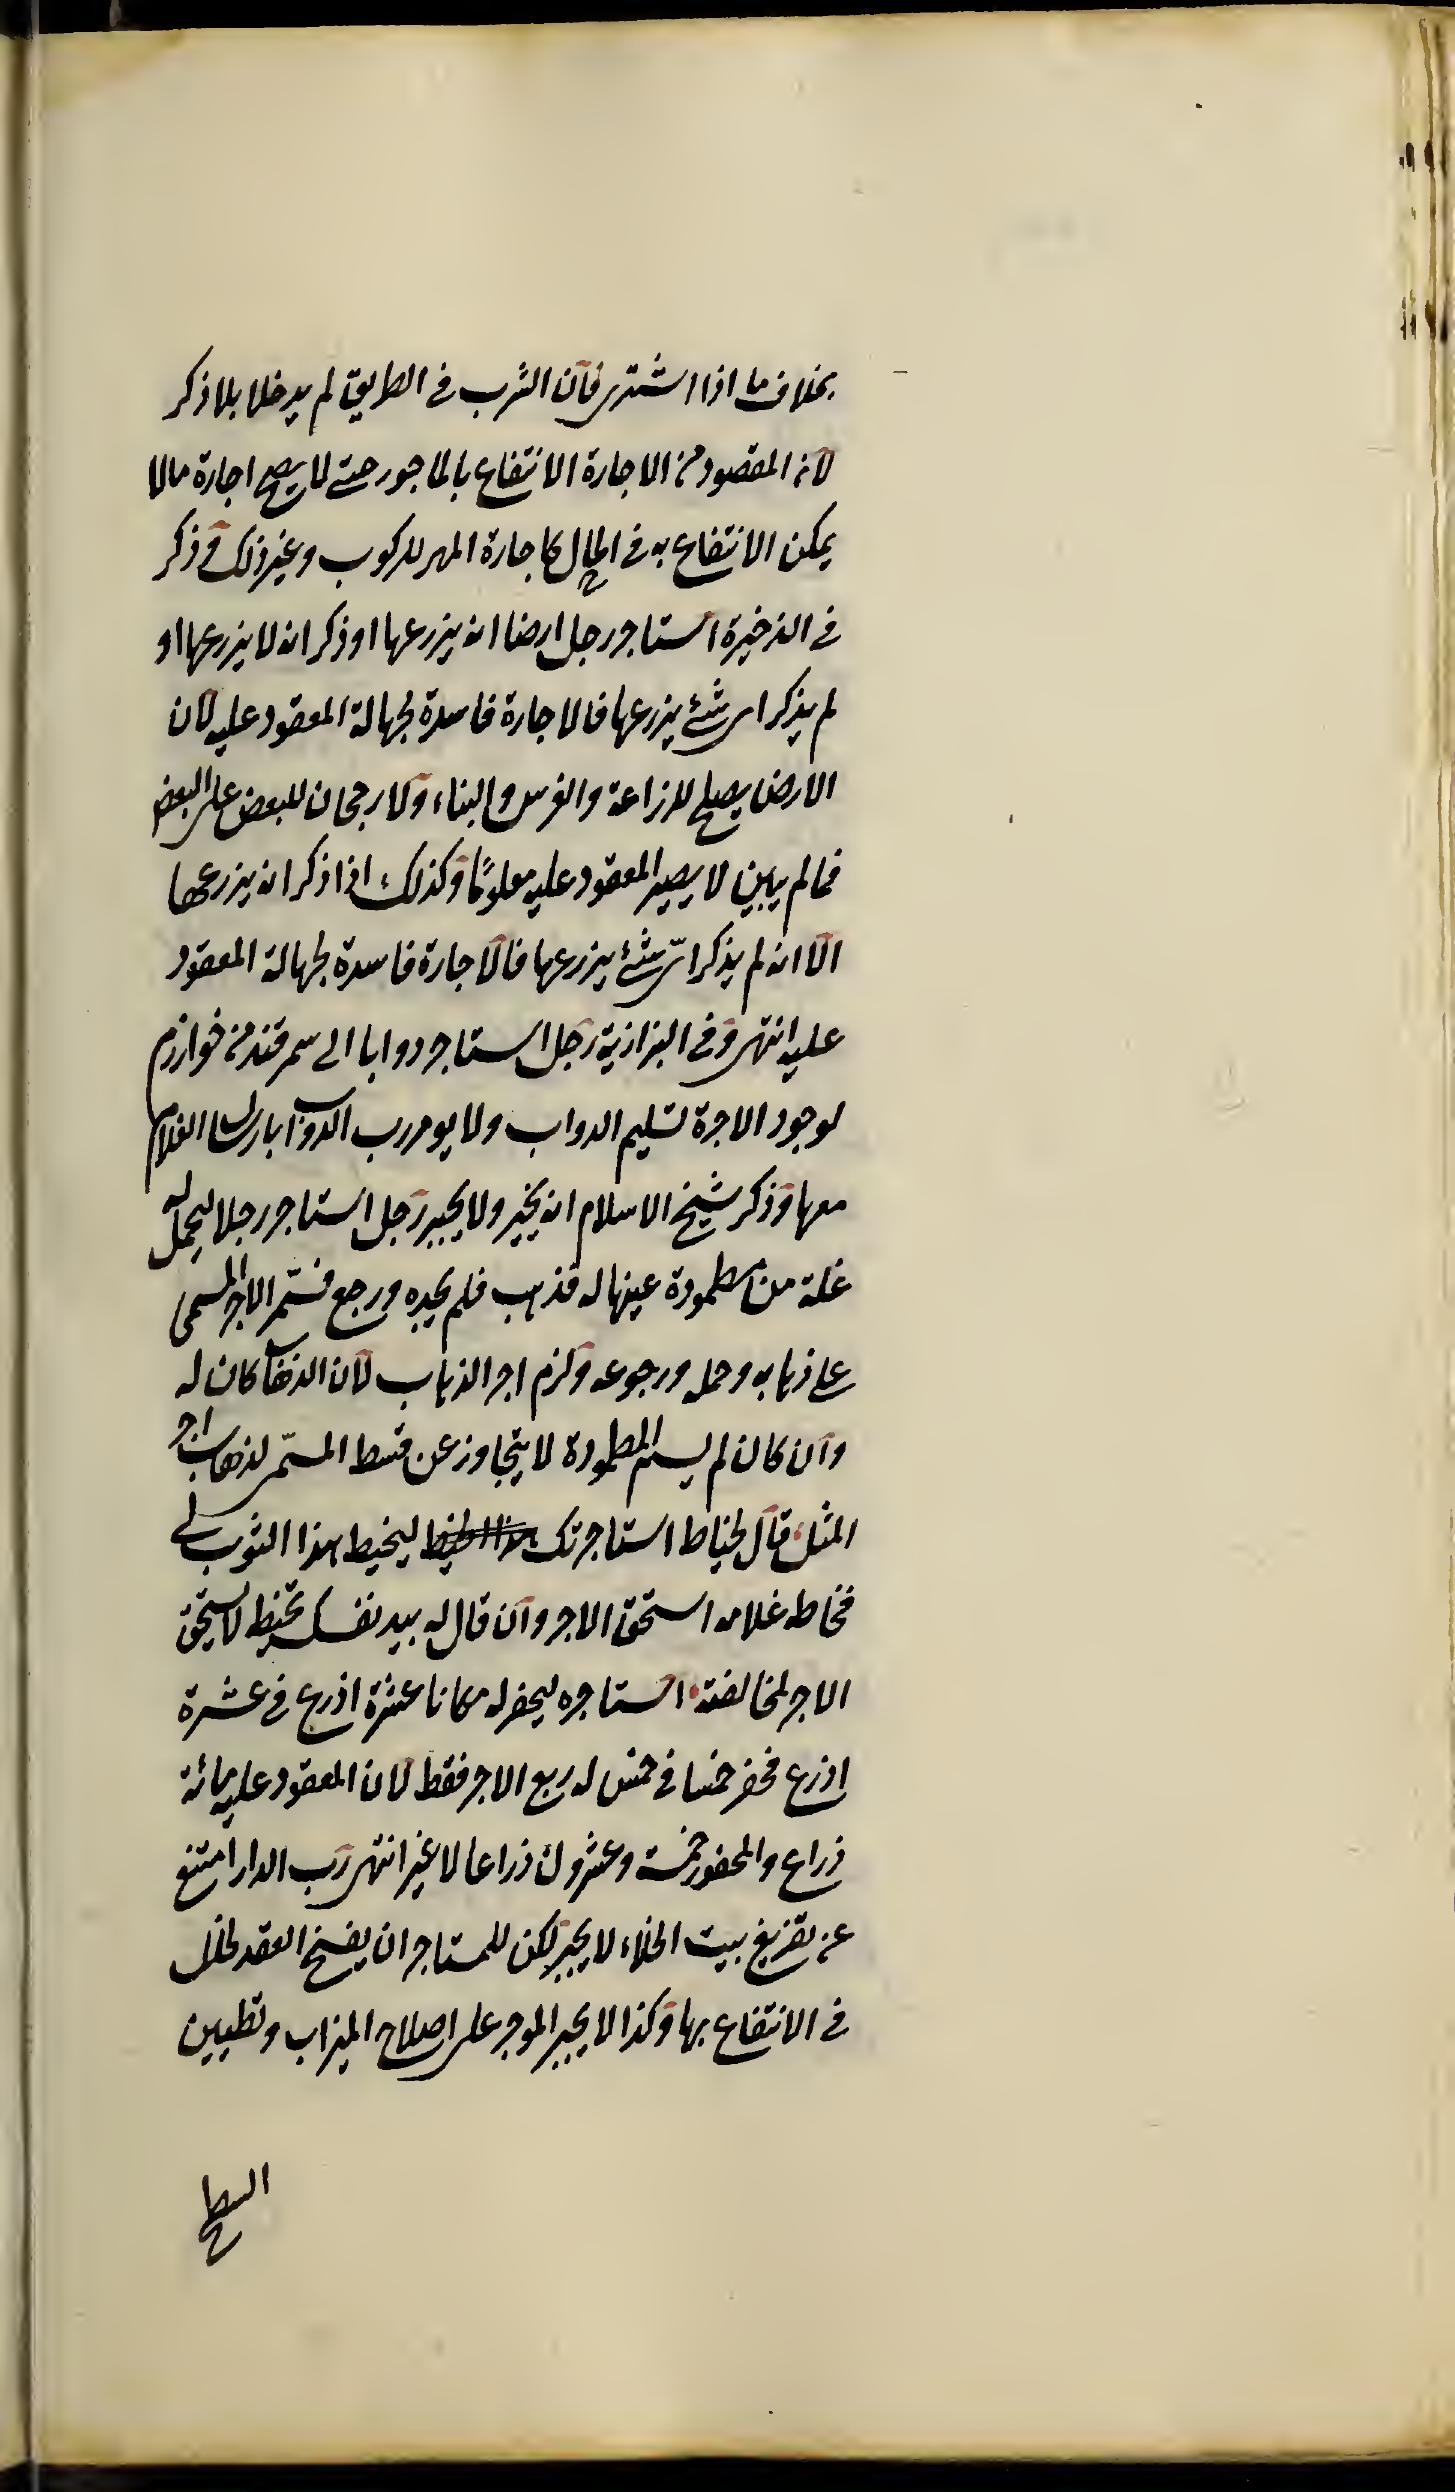 بخلاف ما اذا اشترى فان الشرب فى الطريق لم يدخلا بلا ذكر
لان المقصود من الاجارة الانتفاع بالماجور حتى لا يصح اجارة مالا
يمكن الانتفاع به فى الحال كاجارة المهر للركوب وغير ذلك وذكر
فى الذخيرة استاجر رجل ارضا انه يزرعها او ذكر انه لا يزرعها او
لم يذكر اى شئ يزرعها فالاجارة فاسدة لجهالة المعقود عليه لان
الارض يصلح للزراعة والغرس والبناء ولا رجحان للبعض على البعض
فما لم يبين لا يصير المعقود عليه معلوما وكذلك اذا ذكر انه يزرعها
الا انه لم يذكر اىّ شئ يزرعها فالاجارة فاسدة لجهالة المعقود
عليه انتهى وفى البزازية رجل استاجر دوابا الى سمرقند من خوارزم
لوجود الاجرة تسليم الدواب ولا يومر رب الدواب بارسال الغلام
معها وذكر شيخ الاسلام انه يخير ولا يجبر رجل استاجر رجلا ليحمل له
غلة من مطمودة عينها له فذهب فلم يجده ورجع قسّم الاجر المسمى
على ذهابه وحمله ورجوعه ولزم اجر الذهاب لان الذهاب كان له
وان كان لم يسم المطمودة لا يتجاوز عن قسط المسمّى لذهاب اجر
المثل قال لخياط استاجرتك ليخيط هذا الثوب لى
فخاط غلامه استحق الاجر وان قال له بيد نفسك تخيط لا يستحق
الاجر لمخالفته استاجره ليحفر له مكانا عشرة اذرع فى عشرة
اذرع فحفر خمسا فى خمس له ربع الاجر فقط لان المعقود عليه مائة
ذراع والمحفور خمسة وعشرون ذراعا لا غير انتهى رب الدار امتنع
عن تفريغ بيت الخلاء لا يجبر لكن للمستاجر ان يفسخ العقد لخلل
فى الانتفاع بها وكذا لا يجبر الموجر على اصلاح الميزاب وتطيين
السطح